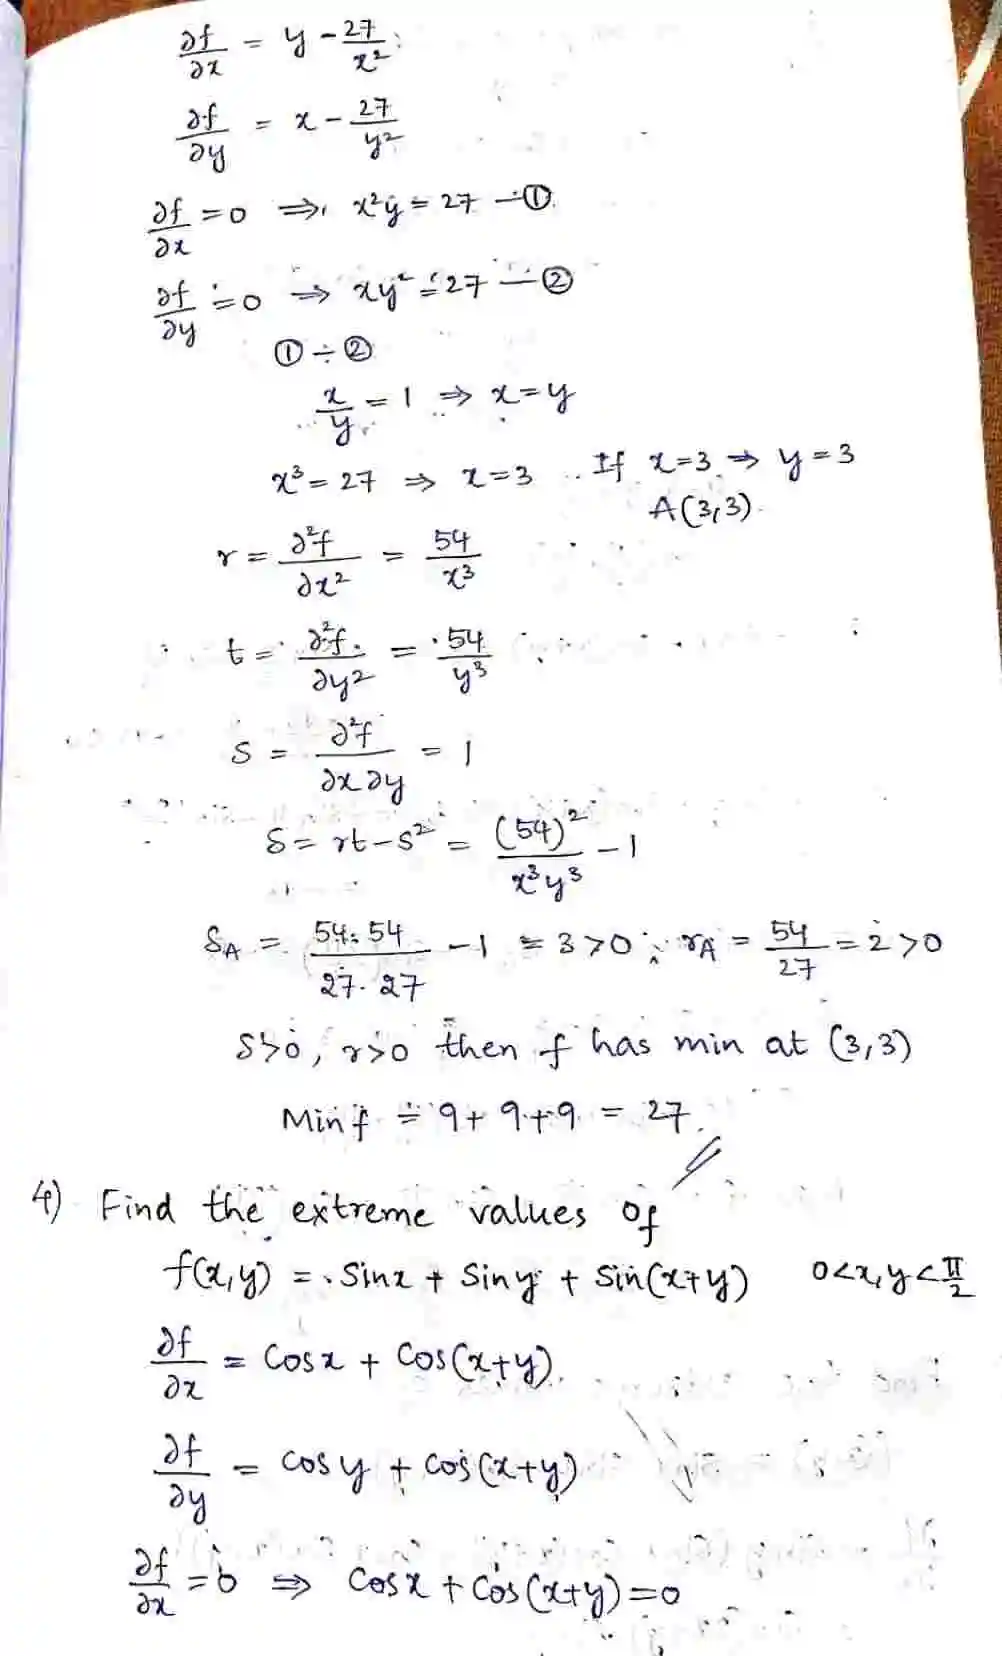 ∂f/∂x = y - 27/x²
∂f/∂y = x - 27/y²
∂f/∂x = 0 ⇒ x²y = 27 — ①
∂f/∂y = 0 ⇒ xy² = 27 — ②
① ÷ ②
x/y = 1 ⇒ x = y
x³ = 27 ⇒ x = 3 .. If x = 3 ⇒ y = 3
A(3,3)
r = ∂²f/∂x² = 54/x³
t = ∂²f/∂y² = 54/y³
S = ∂²f/∂x∂y = 1
δ = rt - s² = (54)²/x³y³ - 1
δA = 54·54/27·27 - 1 = 3 > 0 ; rA = 54/27 = 2 > 0
δ>0, r>0 then f has min at (3,3)
Min f = 9 + 9 + 9 = 27
4) Find the extreme values of
f(x,y) = Sinx + Siny + Sin(x+y) 0<x,y<π/2
∂f/∂x = Cosx + Cos(x+y)
∂f/∂y = Cosy + Cos(x+y)
∂f/∂x = 0 ⇒ Cosx + Cos(x+y) = 0